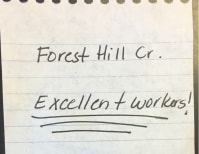 Forest Hill Cr.
Excellent workers!